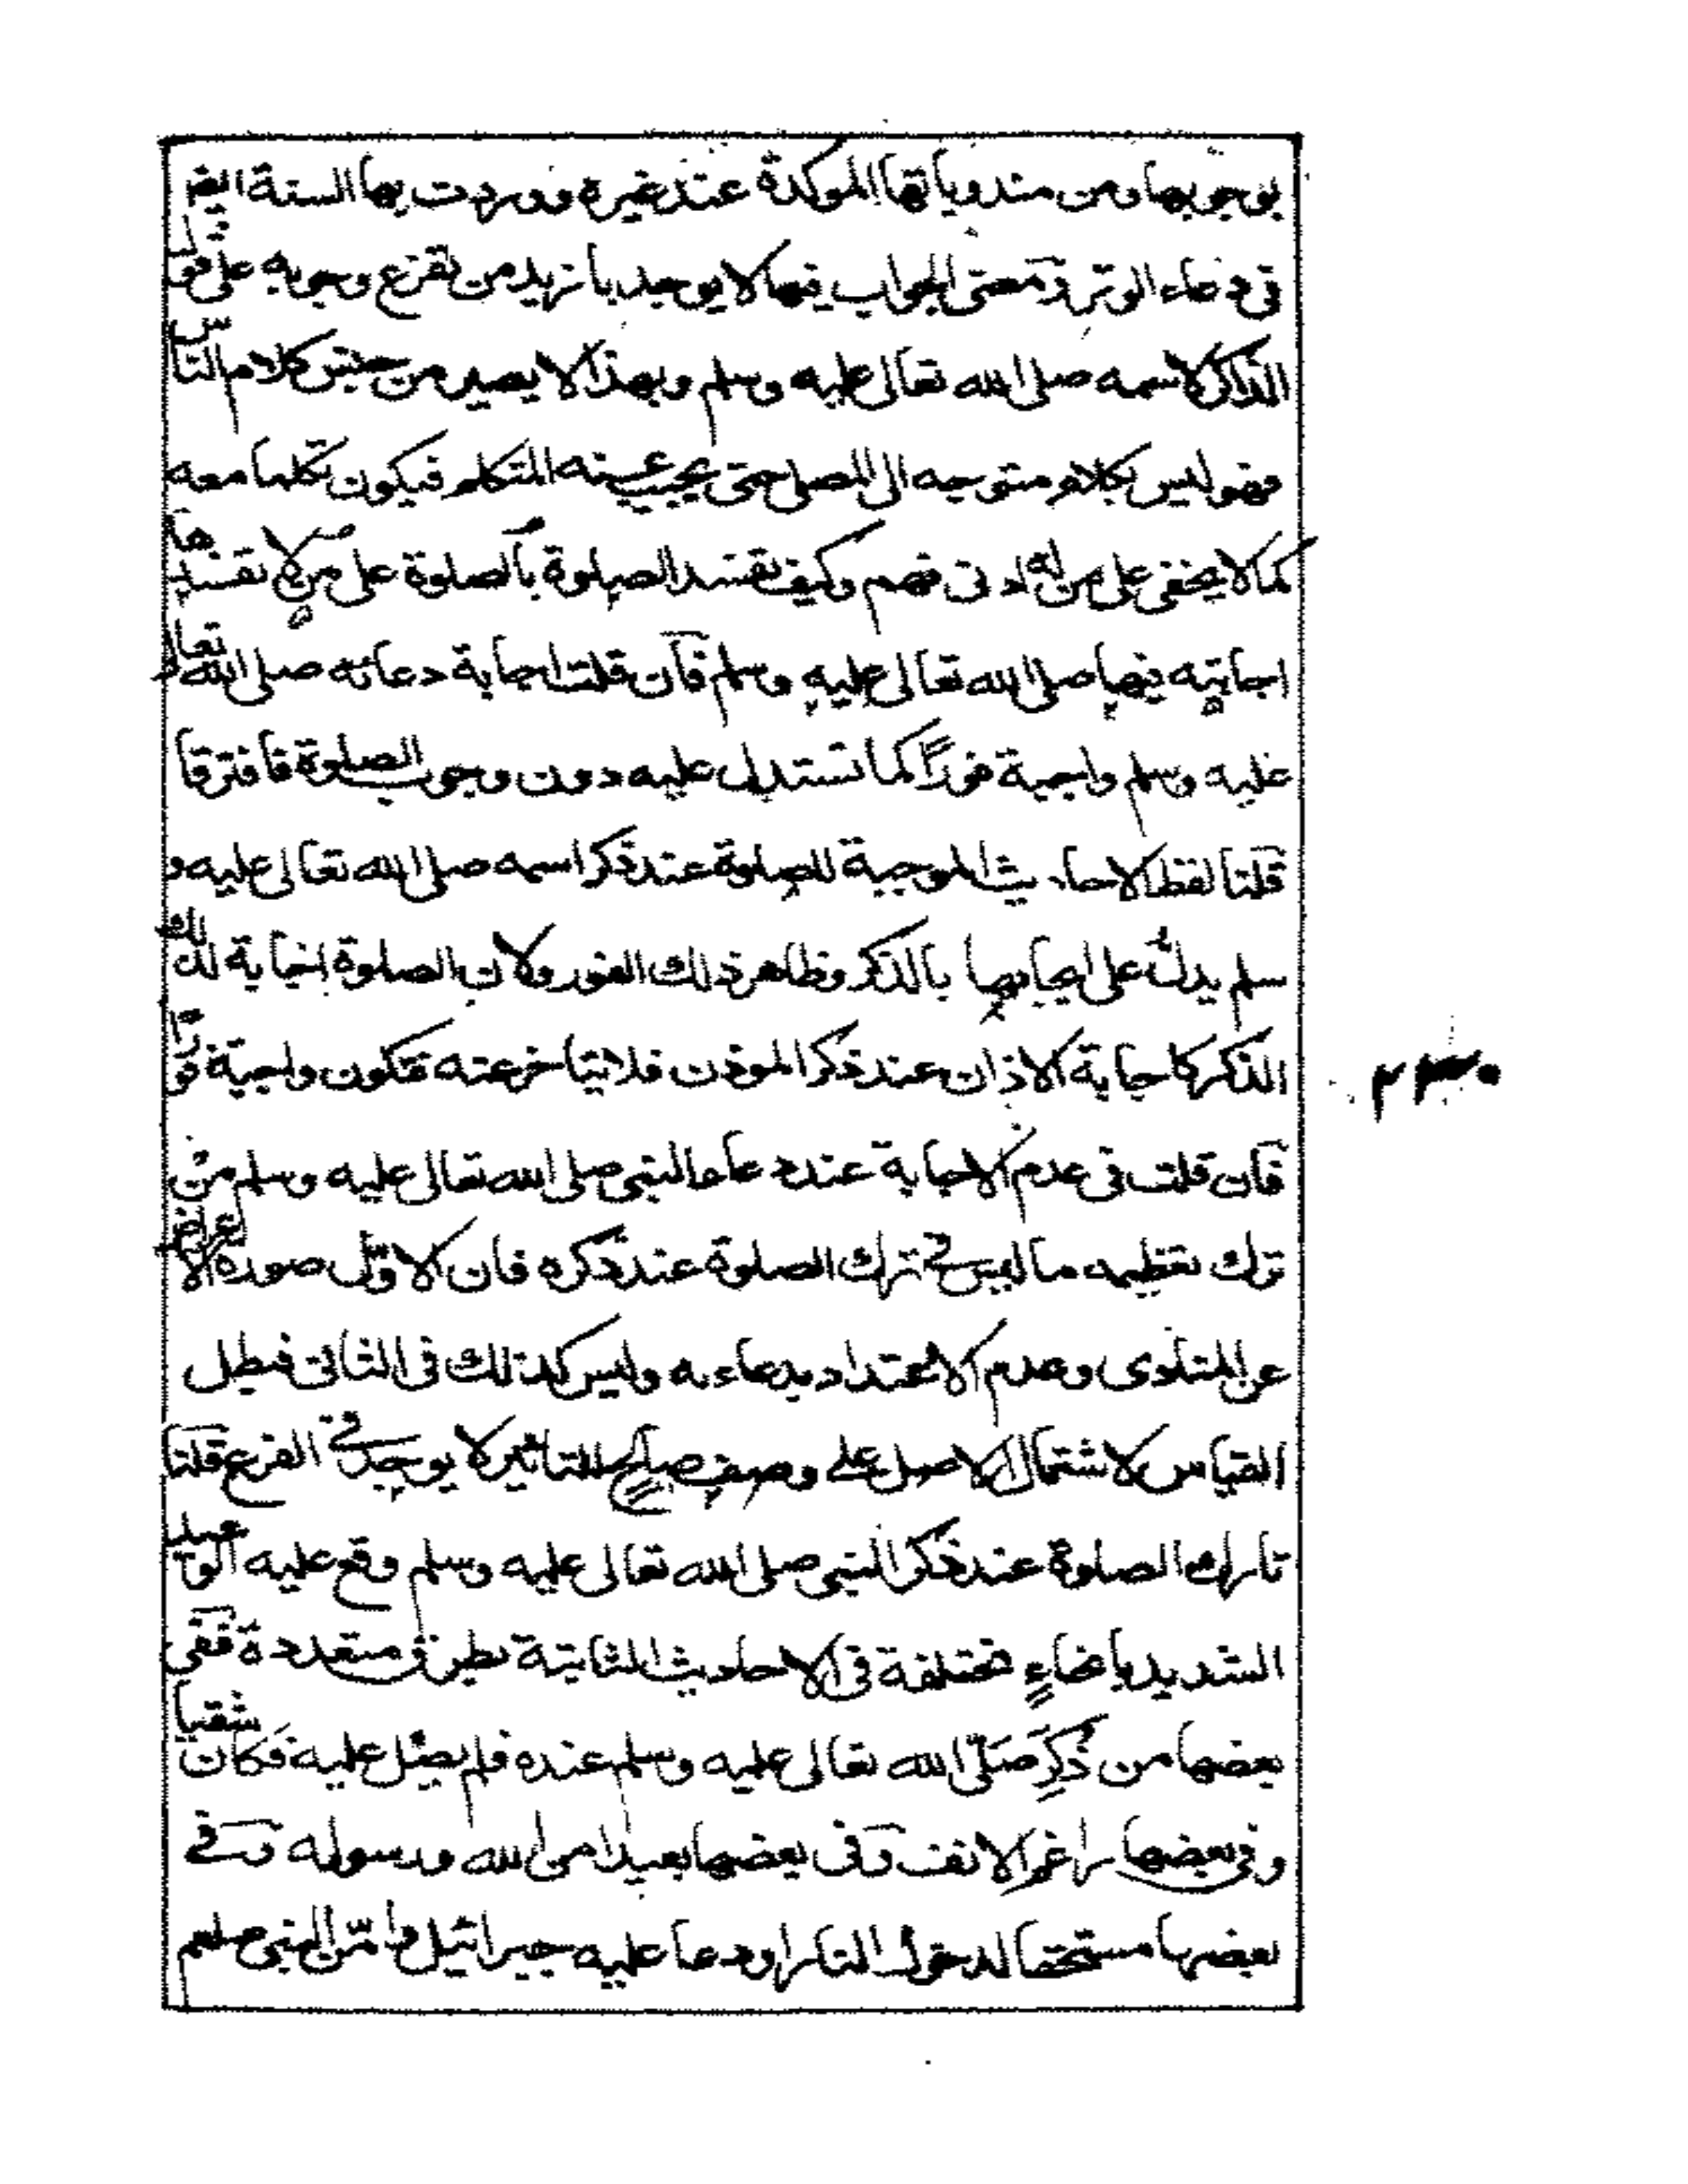 بوجوبها ومن مندوباتها الموكدة عند غيره ووردت بها السنة ايضا
فى دعاء الوتر ومعنى الجواب فيها لا يوجد بازيد من تفرع وجوبه على قول
الذاكر لاسمه صلى الله تعالى عليه وسلم وبهذا لا يصير من جنس كلام الناس
فهو ليس بكلام متوجه الى المصلى حتى يجيب عنه المتكلم فيكون تكلما معه
كما لا يخفى على من له ادنى فهم وكيف تفسد الصلوة بالصلوة على من لا تفسدها
اجابته فيها صلى الله تعالى عليه وسلم فان قلت اجابة دعائه صلى الله تعالى
عليه وسلم واجبة فوراً كما تستدل عليه دون وجوب الصلوة فافترقا
قلنا لفظ الاحاديث الموجبة للصلوة عند ذكر اسمه صلى الله تعالى عليه و
سلم يدل على ايجابها بالذكر وظاهر ذلك الفور ولان الصلوة اجابة لذلك
الذكر كاجابة الاذان عند ذكر الموذن فلا يتاخر عنه فتكون واجبة فورا
فان قلت فى عدم الاجابة عند دعاء النبى صلى الله تعالى عليه وسلم من
ترك تعظيمه ما ليس فى ترك الصلوة عند ذكره فان الاول صورة الاعراض
عن وعدم الاعتداد بدعاءه وليس كذلك فى الثانى فبطل
القياس لاشتمال الاصل على وصف صالح للتاثير لا يوجد فى الفرع قلنا
تارك الصلوة عند ذكر النبى صلى الله تعالى عليه وسلم وقع عليه الوعيد
الشديد بانحاءٍ مختلفة فى الاحاديث الثابتة بطرق متعددة ففى
بعضها من ذُكِرَ صَلَّى الله تعالى عليه وسلم عنده فلم يصل عليه فكان شقيا
وفى بعضها راغم الانف وفى بعضها بعيدا من الله ورسوله وفى
بعضها مستحقا لدخول النار او دعا عليه جبرائيل وامّن النبى صلعم